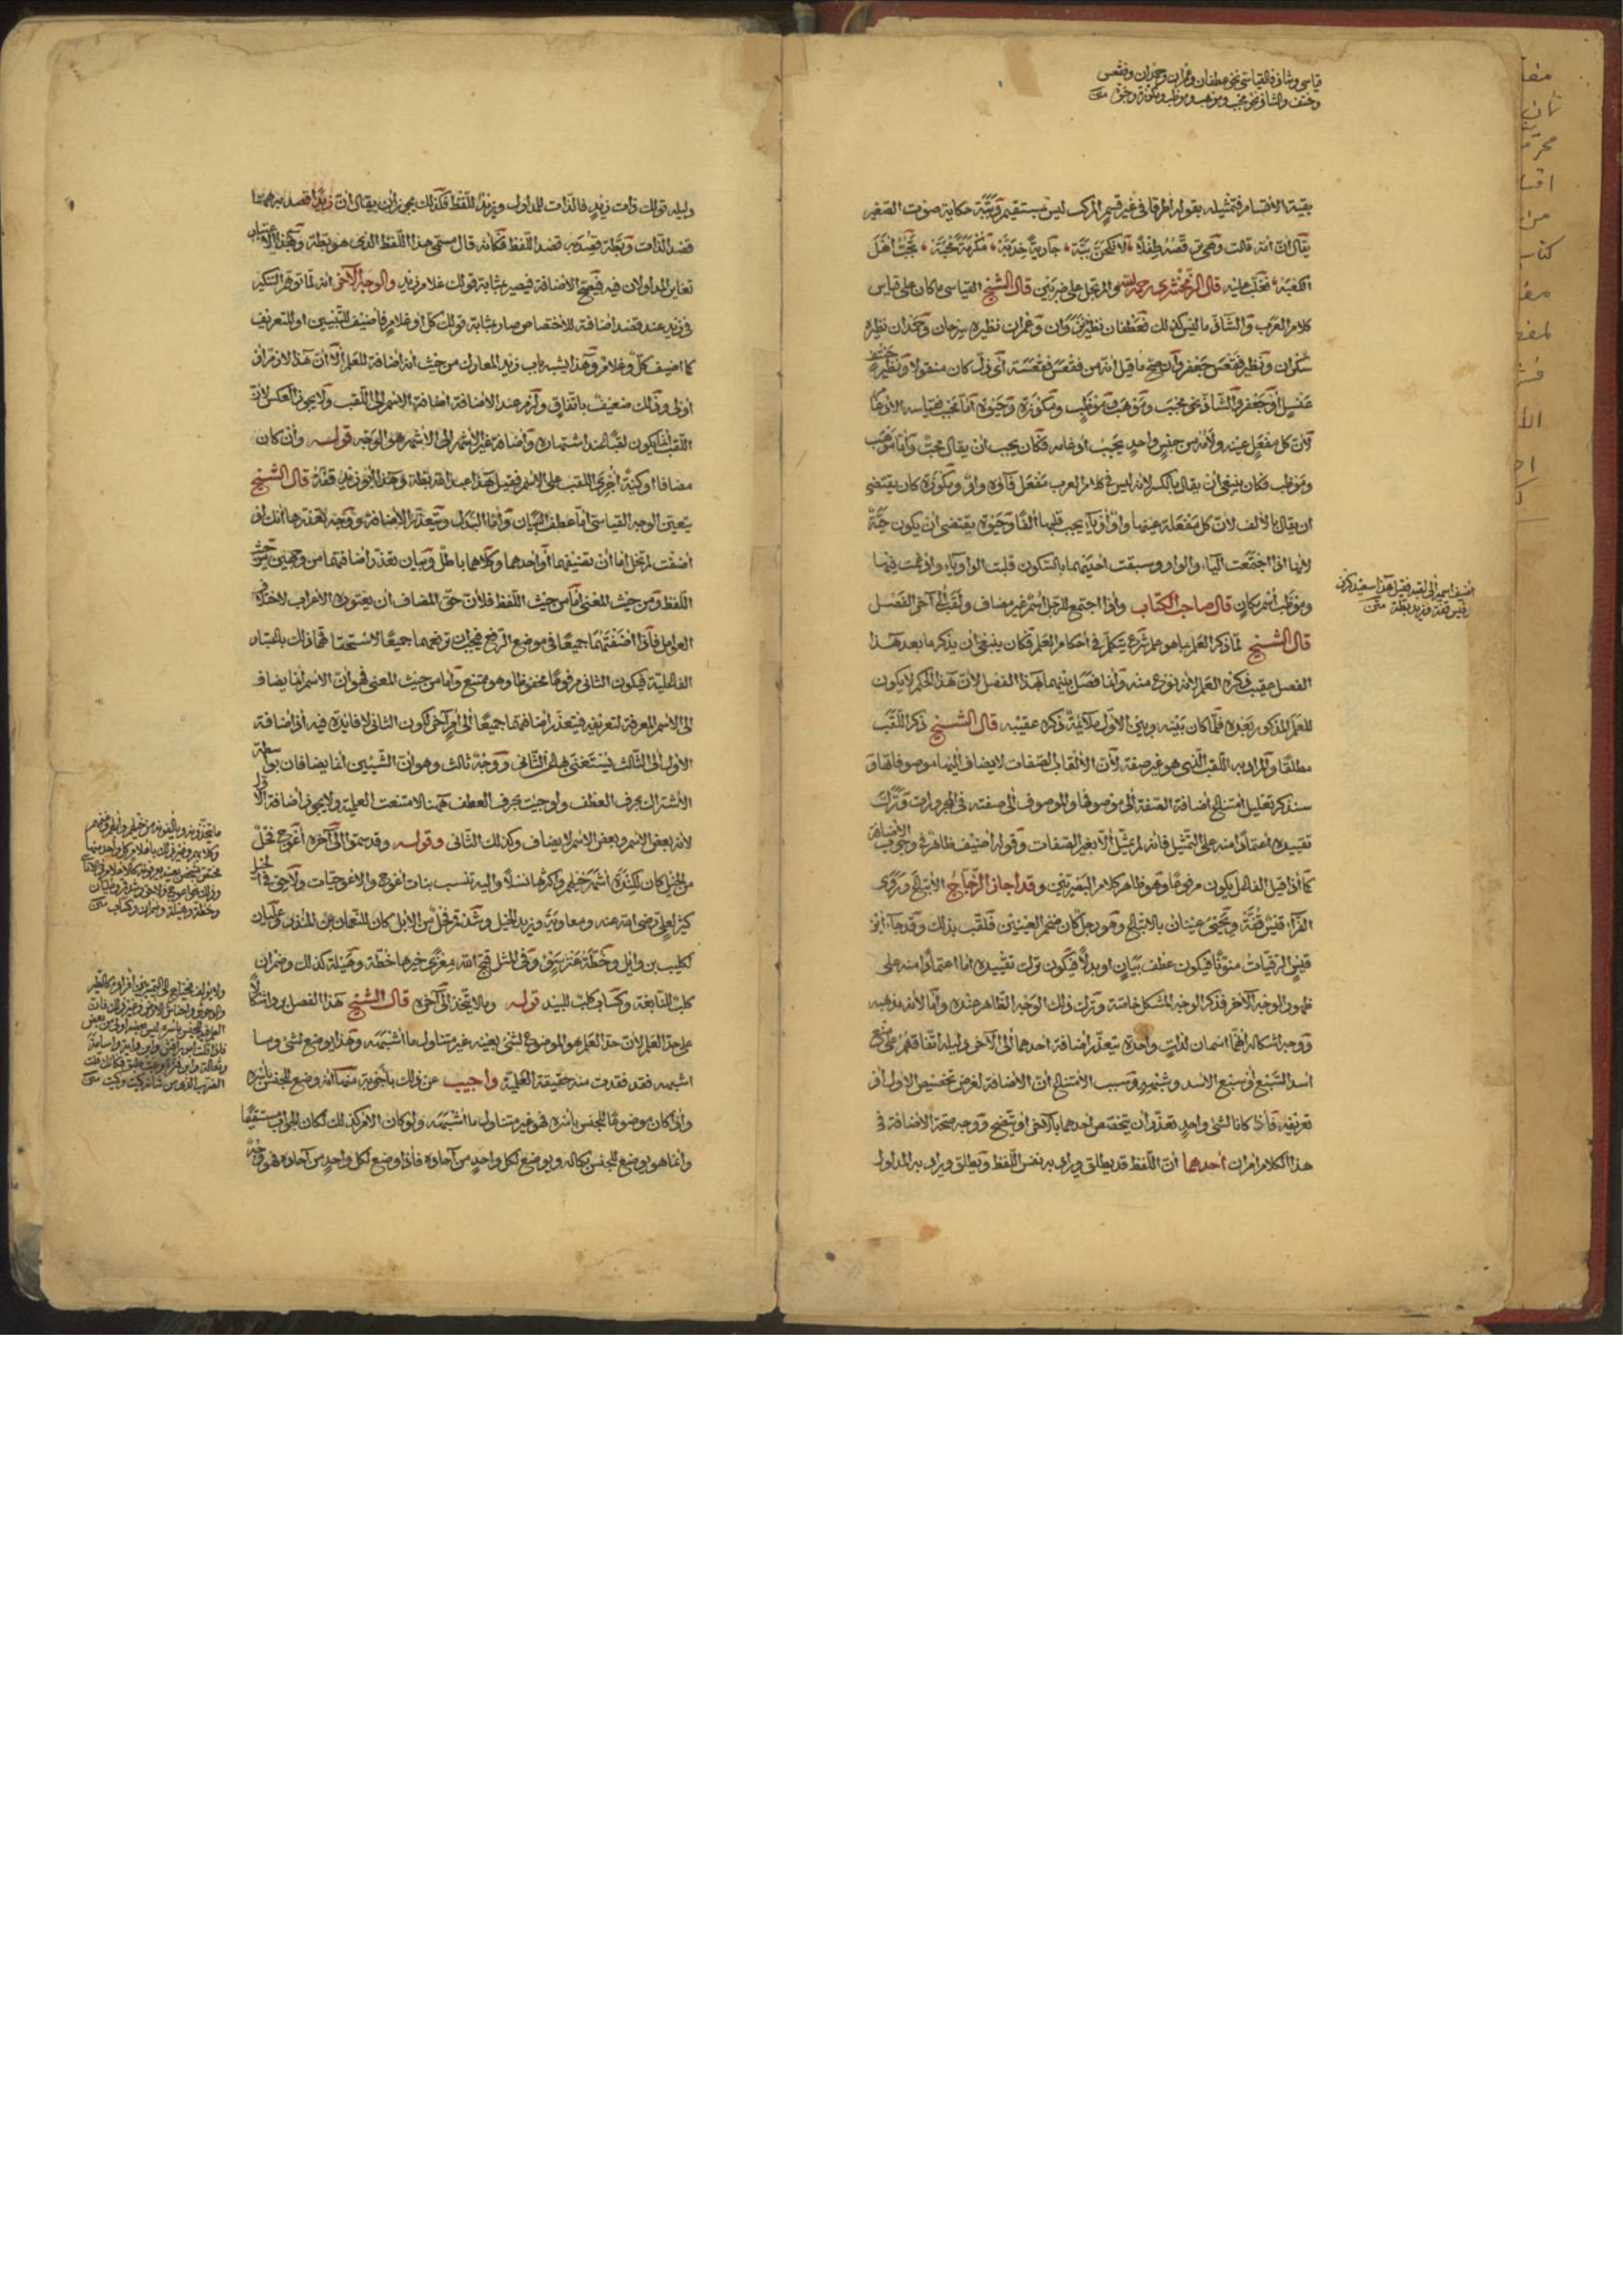 قياسي وشاذ فالقياسي نحو غطفان وعمران وحمدان وفقعس
وحنتف والشاذ نحو محبب وموهب وموظب ومكوزة وحيوة
بقية الأقسام فتمثيله بقوله أطرقا في غير قسم المركب ليس بمستقيم وببّة حكاية صوت الصغير
يقال انّ أمه قالت وهي ترقصه طفلا لأنكحنّ ببّه جارية خدبّه مكرمة محبّه تجبّ أهل
الكعبه فغلب عليه قال الزمخشري رحمه الله والمرتجل على ضربين قال الشيخ القياسي ما كان على قياس
كلام العرب والشاذ ما ليس كذلك فغطفان نظيره نزوان وعمران نظيره سرحان وحمدان نظيره
سكران ونظير فقعس جعفر وان صح ما قيل انه من فقعس فقعسة أي ذلّ كان منقولا ونظير حنتف
عنسل أو جعفر والشاذ نحو محبب وموهب وموظب ومكوزة وحيوة أما محبب فقياسه الادغام
لأن كل مفعل عينه ولامه من جنس واحد يجب ادغامه فكان يجب أن يقال محبّ وأما موهب
وموظب فكان ينبغي أن يقال بالكسر لأنه ليس في كلام العرب مفعل فاؤه واو ومكوزة كان يقتضي
ان يقال بالألف لأن كل مفعلة عينها واو أو ياء يجب قلبها ألفا وحيوة يقتضي أن يكون حيّة
لأنها اذا اجتمعت الياء والواو وسبقت احديهما بالسكون قلبت الواو ياء وادغمت فيها
وموظب اسم مكان قال صاحب الكتاب واذا اجتمع للرجل اسم غير مضاف ولقب إلى آخر الفصل
قال الشيخ لمّا ذكر العلم بما هو علم شرع يتكلم في أحكام العلم فكان ينبغي أن يذكر ما بعد هذا
الفصل عقيب ذكره العلم لأنه نوع منه وانما فصل بينهما بهذا الفصل لأن هذا الحكم لا يكون
للعلم المذكور بعده فلما كان بينه وبين الأول ملائمة ذكره عقيبه قال الشيخ ذكر اللقب
مطلقا والمراد به اللقب الذي هو غير صفة لأن الألقاب الصفات لا يضاف اليها موصوفاتها و
سنذكر تعليل امتناع اضافة الصفة الى موصوفها والموصوف الى صفته في المجرورات وترك
تقييده اعتمادا منه على التمثيل فانه لم يمثل الا بغير الصفات وقوله أضيف ظاهر في وجوب الاضافة
كما اذا قيل الفاعل يكون مرفوعا وهو ظاهر كلام البصريين وقد اجاز الزجاج الاتباع وروى
الفراء قيس قفّة ويحيى عينان بالاتباع وهو رجل كان ضخم العينين فلقب بذلك وقد جاء ابن
قيس الرقيات منونا فيكون عطف بيان او بدلا فيكون ترك تقييده اما اعتمادا منه على
ظهور الوجه الآخر فذكر الوجه المشكل خاصة وترك ذلك الوجه الظاهر عنده واما لأنه مذهبه
ووجه اشكاله انهما اسمان لذات واحدة يتعذر اضافة احدهما الى الآخر دليله اتفاقهم على منع
أسد السبع أو سبع الأسد وشبهه وسبب الامتناع أن الاضافة لغرض تخصيص الأول أو
تعريفه فاذا كانا لشيء واحد تعذر أن يتخصص أحدهما بالآخر أو يتضح ووجه صحة الاضافة في
هذا الكلام أمران أحدهما أن اللفظ قد يطلق ويراد به نفس اللفظ ويطلق ويراد به المدلول
أضيف اسمه إلى لقبه فقيل هذا سعيد كرز
وقيس قفة وزيد بطة
دليله قولك ذات زيد فالذات للمدلول وزيد للفظ فكذلك يجوز أن يقال انّ زيدا قصد به ههنا
قصد الذات وبطة قصد به قصد اللفظ فكأنه قال مسمى هذا اللفظ الذي هو بطة وبهذا الاعتبار
تغاير المدلولان فيه فيصح الاضافة فيصير بمثابة قولك غلام زيد والوجه الآخر أنه لما توهم التنكير
في زيد عند قصد اضافته للاختصاص صار بمثابة قولك كل أو غلام فأضيف للتبيين او للتعريف
كما اضيف كل وغلام وهذا يشبه باب زيد المعارك من حيث أنه اضافة للعلم الا انّ هذا لازم أو
أولى وذلك ضعيف باتفاق ولزم عند الاضافة اضافة الاسم الى اللقب ولا يجوز العكس لأن
اللقب انما يكون لقبا عند اشتهاره واضافة غير الأشهر الى الأشهر هو الوجه قوله وان كان
مضافا او كنية أجرى اللقب على الاسم فقيل هذا عبد الله بطة وهذا أبو زيد قفة قال الشيخ
يتعين الوجه القياسي اما عطف البيان واما البدل ويتعذر الاضافة ووجه تعذرها أنك لو
أضفت لم تخل اما أن تضيفهما أو أحدهما وكلاهما باطل وبيان تعذر اضافتهما من وجهين من حيث
اللفظ ومن حيث المعنى أما من حيث اللفظ فلأن حق المضاف أن يعتوره الاعراب لاختلاف
العوامل فاذا أضفتهما جميعا في موضع الرفع فيجب ان ترفعهما جميعا لاستحقاقهما ذلك باعتبار
الفاعلية فيكون الثاني مرفوعا مخفوضا وهو ممتنع وأما من حيث المعنى فهو أن الاسم انما يضاف
الى الاسم المعرفة لتعريفه فيتعذر اضافتهما جميعا الى أمر آخر لكون الثاني لا فائدة فيه اذ اضافة
الأول الى الثالث يستغنى بها عن الثاني ووجه ثالث وهو أن الشيئين انما يضافان بواسطة
الاشتراك بحرف العطف ولو جئت بحرف العطف ههنا لامتنعت العلمية ولا يجوز اضافة الأول
لأنه بعض الاسم وبعض الاسم لا يضاف وكذلك الثاني وقوله وقد سموا الى آخره أعوج فحل
من الخيل كان لكندة أشهر خيلهم واكثرها نسلا واليه تنسب بنات أعوج والاعوجيات ولاحق فحل
كثير لعلي رضي الله عنه ومعاوية وزيد الخيل وشدقم فحل من الابل كان للنعمان بن المنذر وعليان
لكليب بن وائل وخطة عنز سوء وفي المثل قبح الله معزى خيرها خطة وهيلة كذلك وضمران
كلب للنابغة وكساب كلب للبيد قوله وما لا يتخذ الى آخره قال الشيخ هذا الفصل يرد اشكالا
على حد العلم لأن حد العلم هو الموضوع لشيء بعينه غير متناول ما أشبهه وهذا يوضع لشيء وما
اشبهه فقد فقدت منه حقيقة العلمية وأجيب عن ذلك بأجوبة منها انه وضع للجنس بأسره
واذا كان موضوعا للجنس بأسره فهو غير متناول ما أشبهه ولو كان الأمر كذلك لكان الجواب مستقيما
وانما هو يوضع للجنس بكماله ويوضع لكل واحد من آحاده فاذا وضع لكل واحد من آحاده فهو